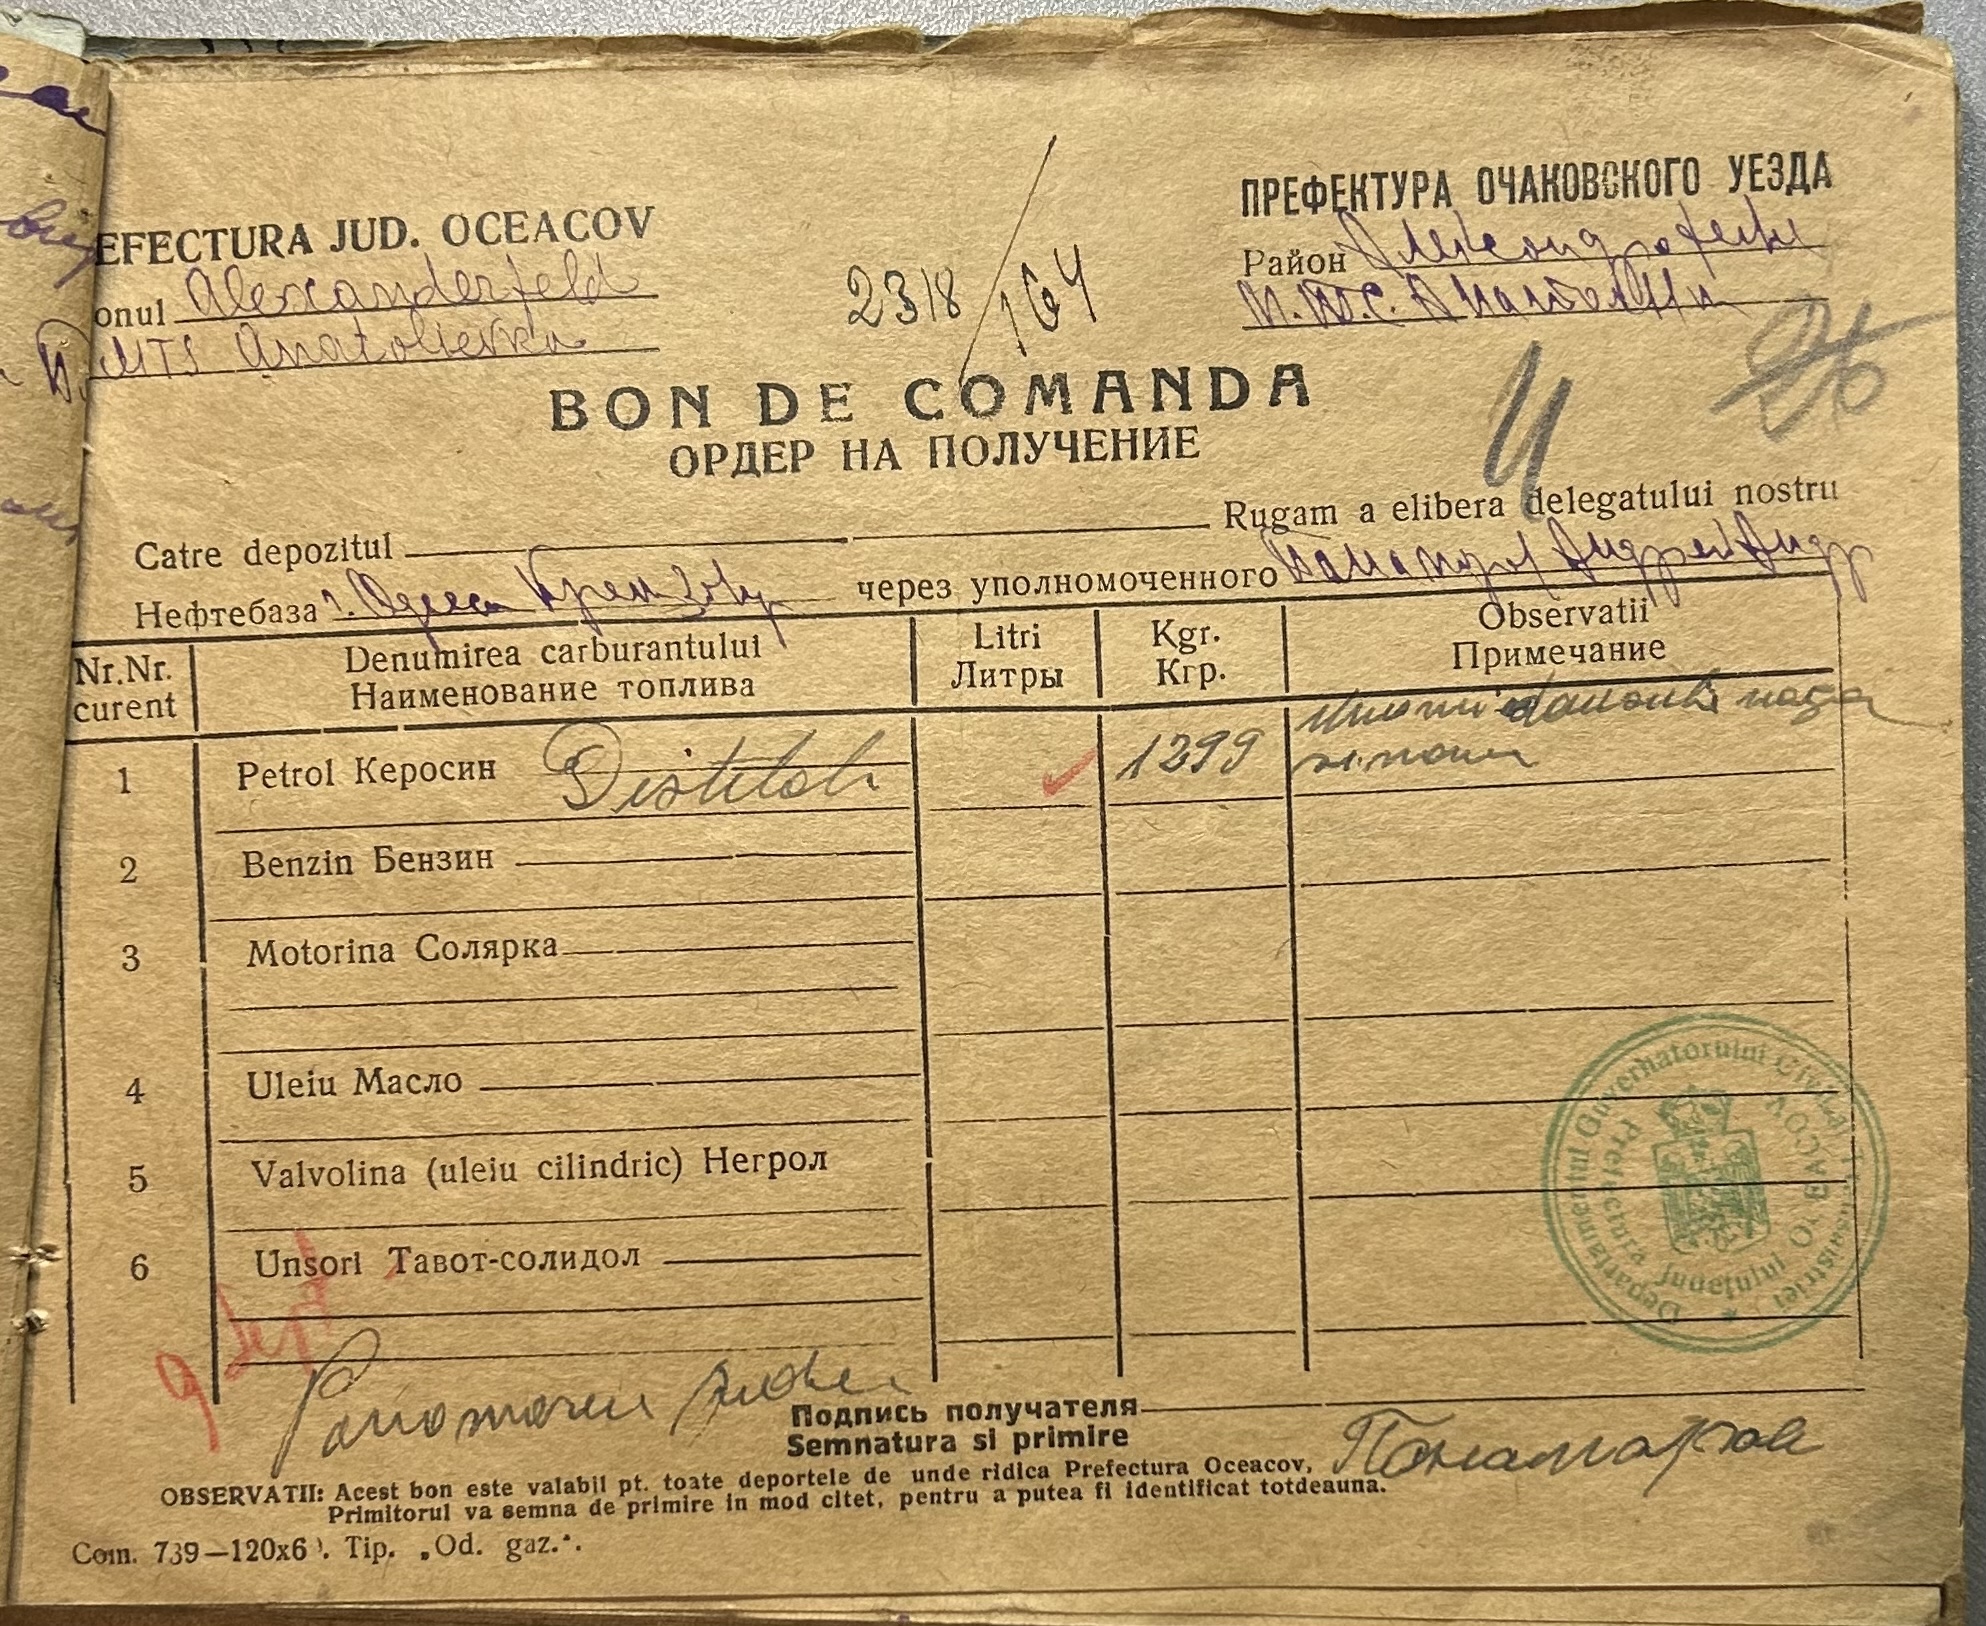 EFECTURA JUD. OCEACOV
onul Alexanderfeld
MTS Anatolievka
2318/164
ПРЕФЕКТУРА ОЧАКОВСКОГО УЕЗДА
Район
М.Т.С.
26
BON DE COMANDA
ОРДЕР НА ПОЛУЧЕНИЕ
Catre depozitul Rugam a elibera delegatului nostru
Нефтебаза г. Одесса через уполномоченного Андрей
Nr.Nr. curent
Denumirea carburantului
Наименование топлива
Litri
Литры
Kgr.
Кгр.
Observatii
Примечание
1 Petrol Керосин Distilat 1299
2 Benzin Бензин
3 Motorina Солярка
4 Uleiu Масло
5 Valvolina (uleiu cilindric) Негрол
6 Unsori Тавот-солидол
9 Sept
Ponomareu
Подпись получателя
Semnatura si primire
OBSERVATII: Acest bon este valabil pt. toate deportele de unde ridica Prefectura Oceacov,
Primitorul va semna de primire in mod citet, pentru a putea fi identificat totdeauna.
Com. 739—120x6 . Tip. „Od. gaz.".
Departamentul Guvernatorului Civil al Transnistriei
Prefectura Judeţului OCEACOV